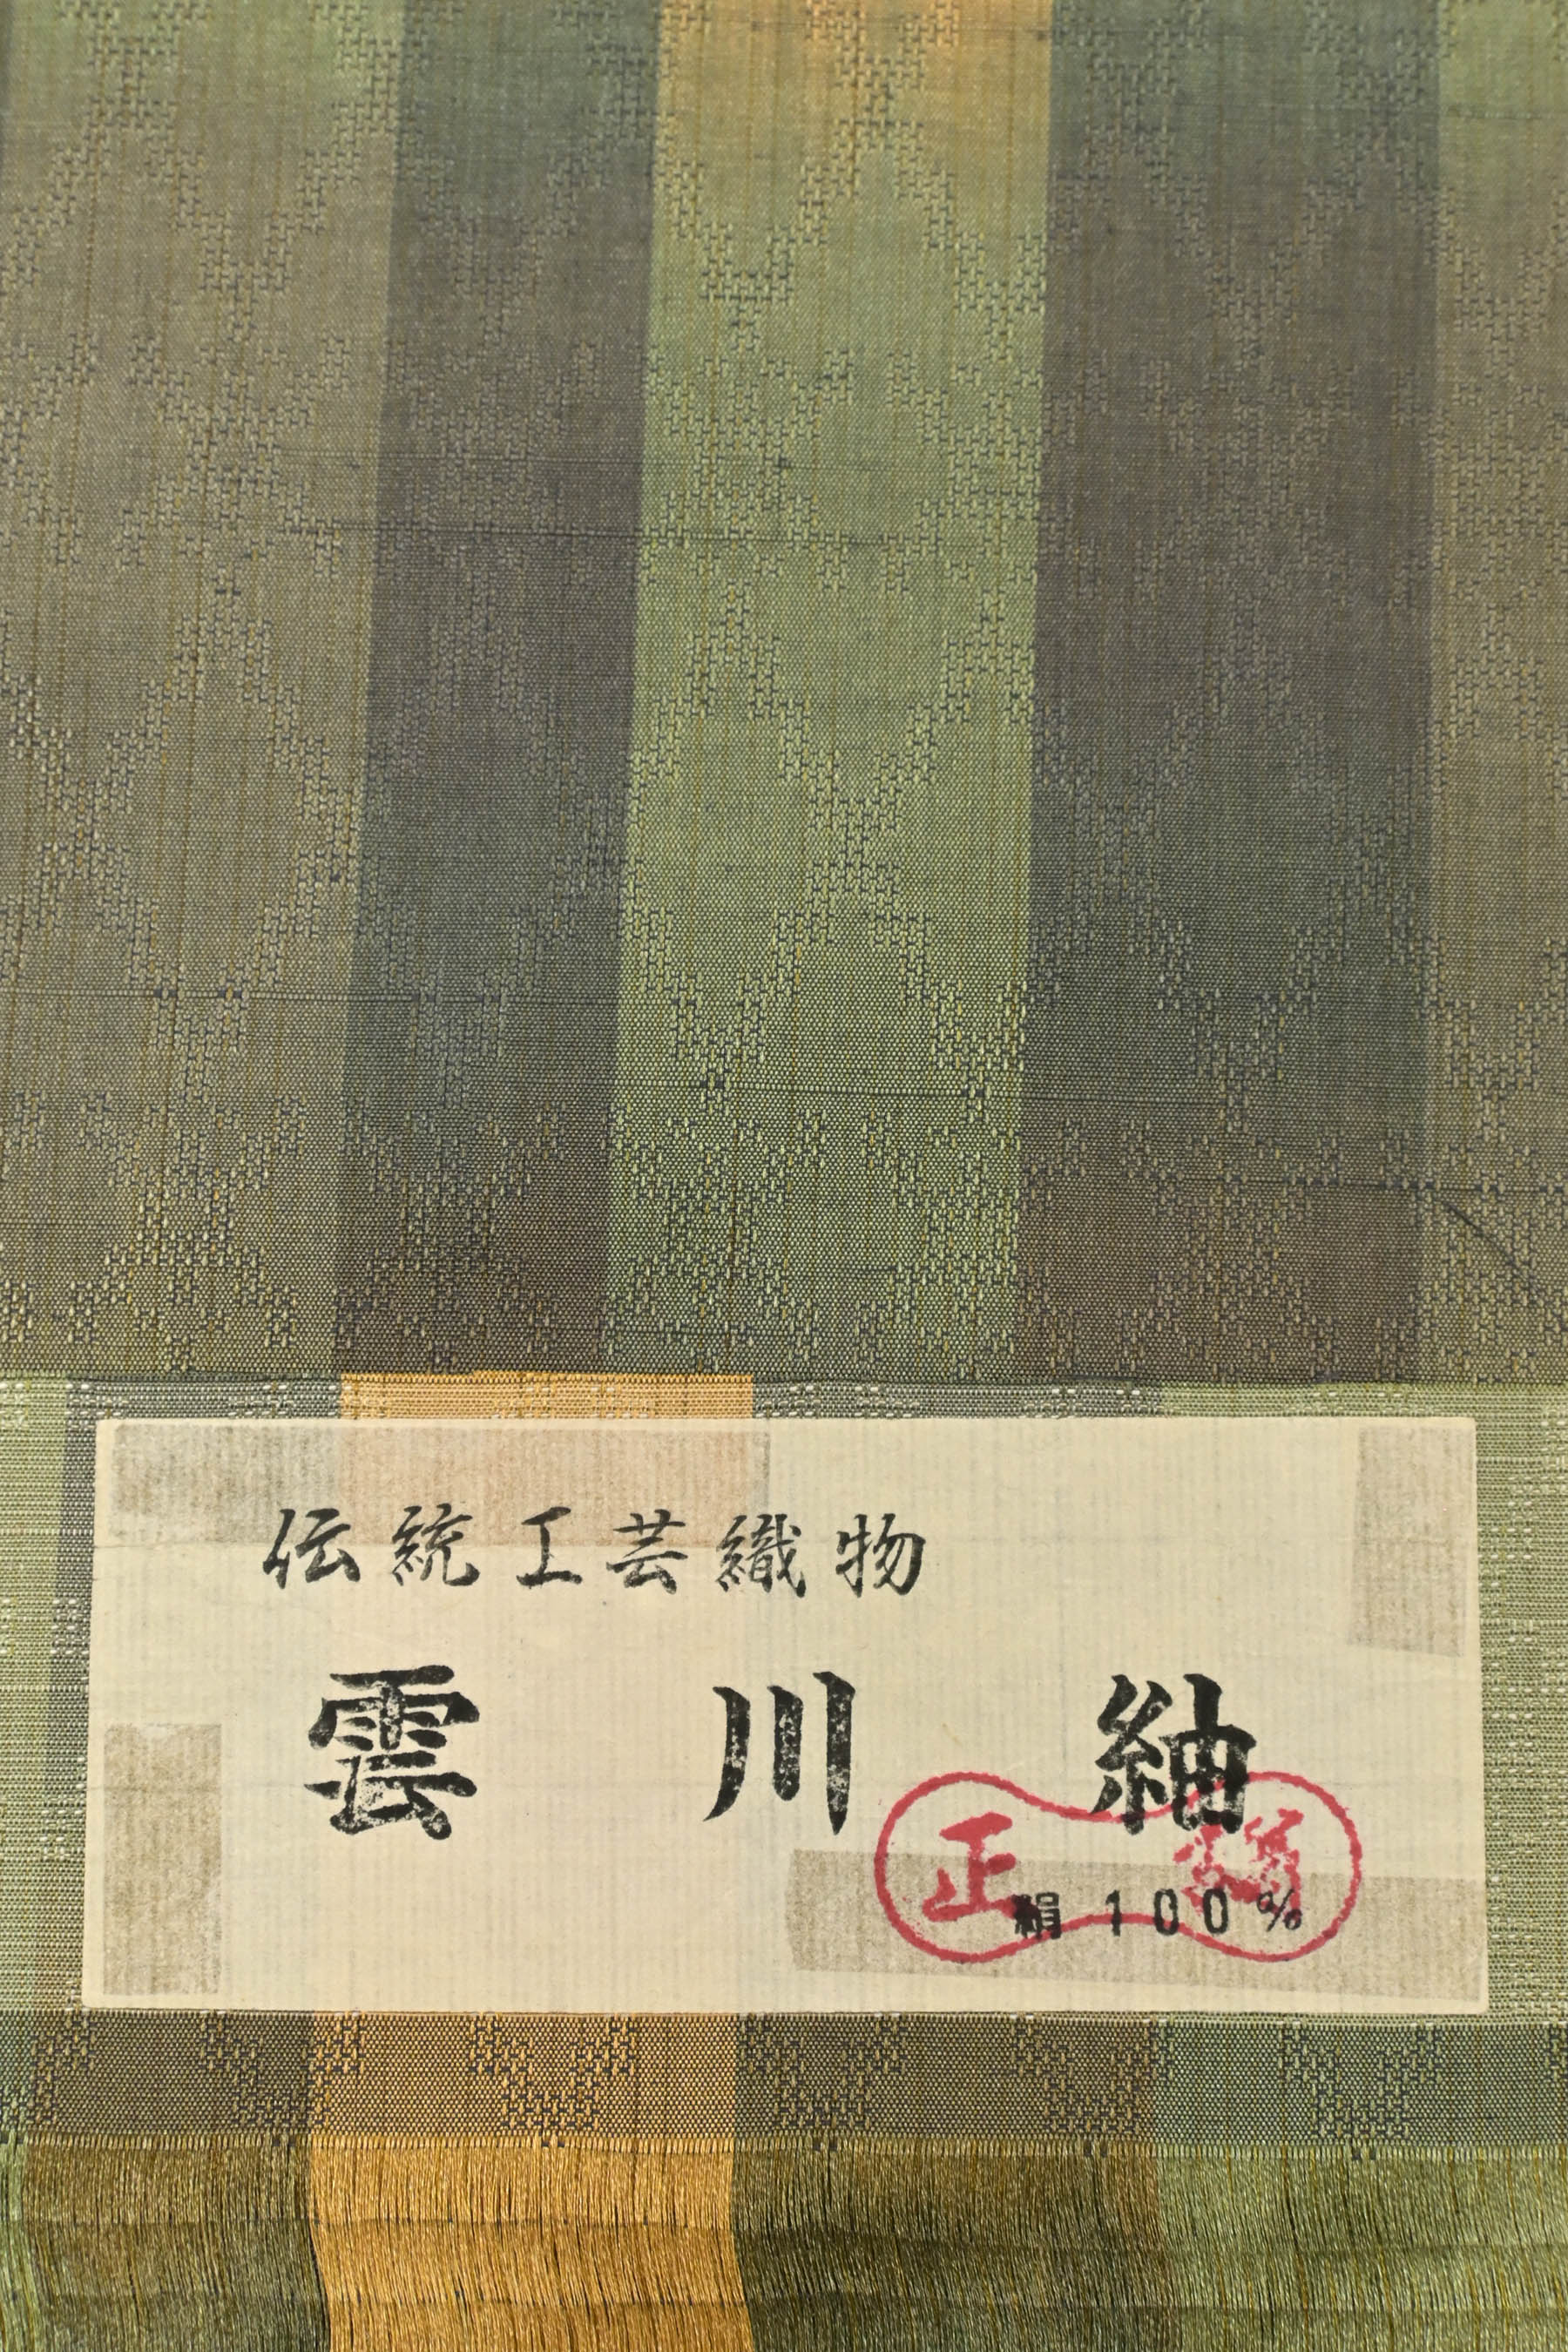 伝統工芸織物
雲川紬
正絹
絹100%